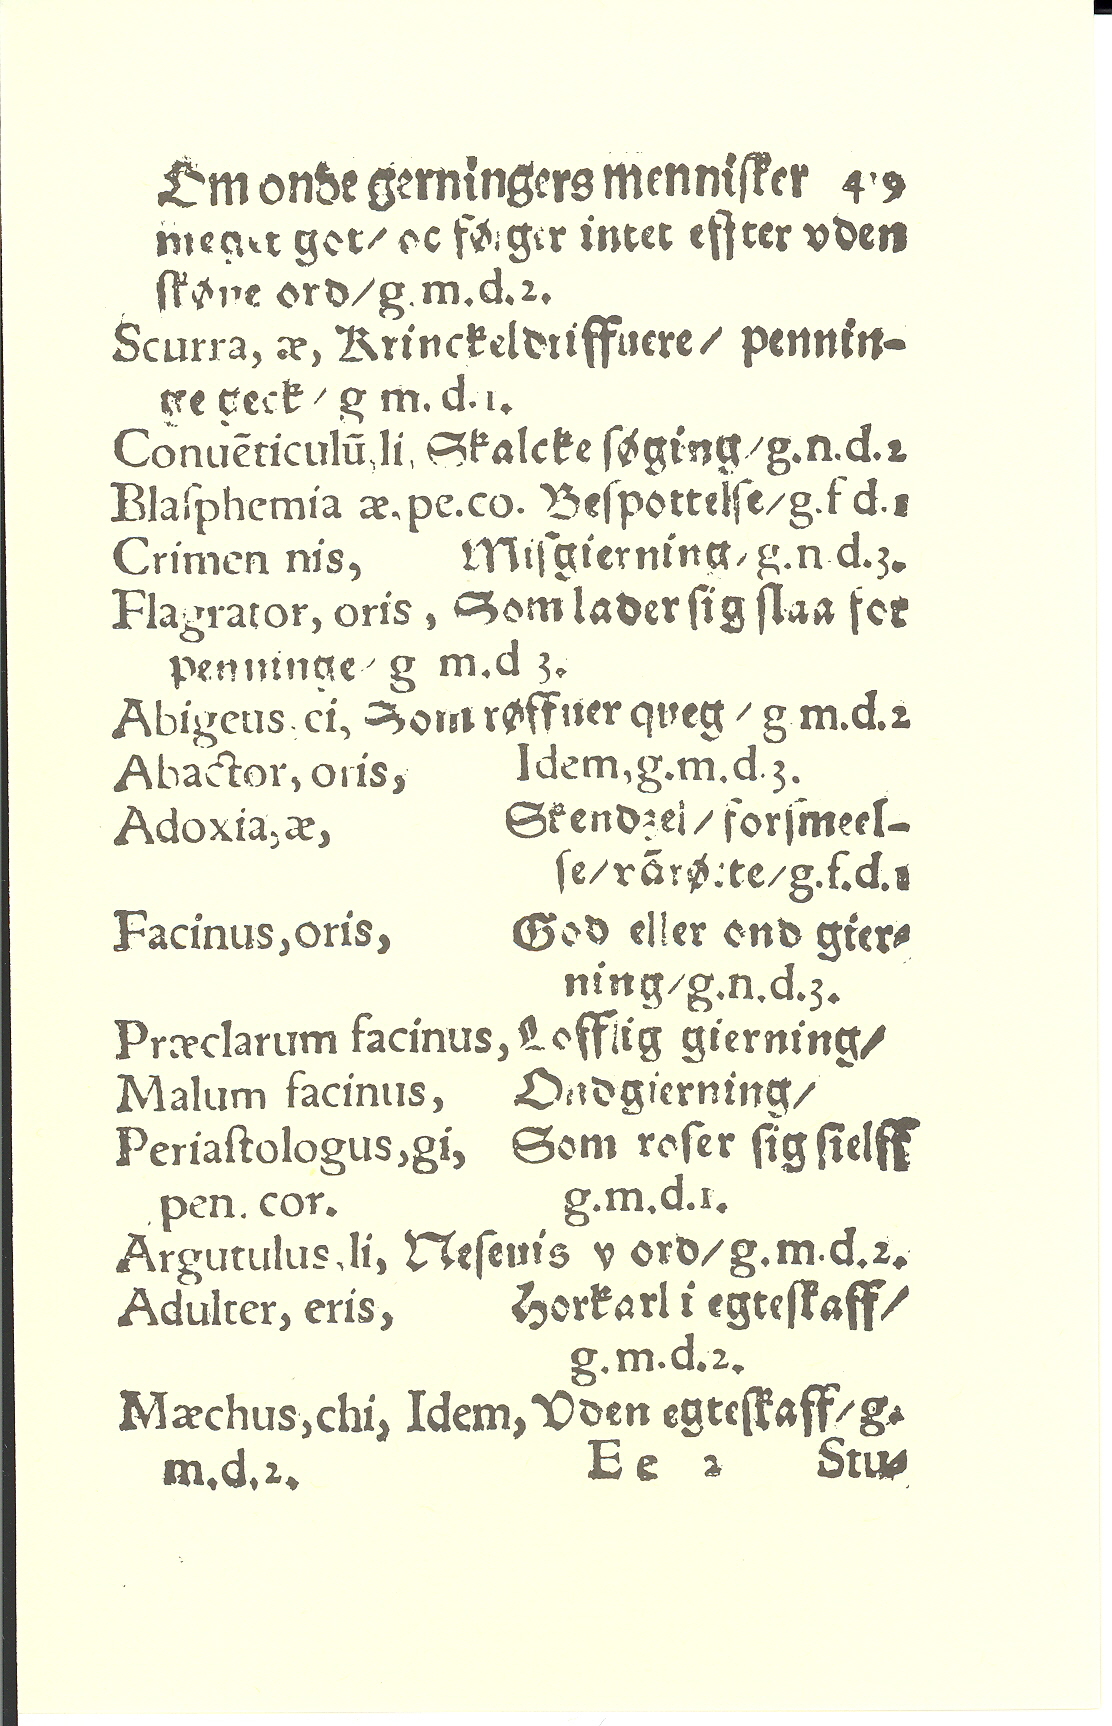 Om onde gerningers mennisker 419
meget got/ oc følger intet effter vden
skøne ord/g.m.d.2.
Scurra, æ, Krinckeldriffuere/ pennin-
ge geck/ g m. d.1.
Conuẽticulũ,li, Skalcke søging/g.n.d.2
Blaſphemia æ.pe.co. Beſpottelſe/g.f d.1
Crimen nis, Miſgierning/g.n d.3.
Flagrator, oris, Som lader ſig ſlaa for
penninge/ g m.d 3.
Abigeus.ci, Som røffuer qveg / g m.d.2
Abactor, oris, Idem,g.m.d.3.
Adoxia,æ, Skendzel/ forſmeel-
ſe/ g.f.d.1
Facinus,oris, God eller ond gier-
ning/g.n.d.3.
Præclarum facinus, Lofflig gierning/
Malum facinus, Ondgierning/
Periaſtologus,gi, Som roſer ſig ſielff
pen. cor. g.m.d.1.
Argutulus,li, Neſeuis v ord/g.m.d.2.
Adulter, eris, Horkarl i egteſkaff/
g.m.d.2.
Mæchus,chi, Idem, Vden egteſkaff/g.
m.d.2. E e 2 Stu-